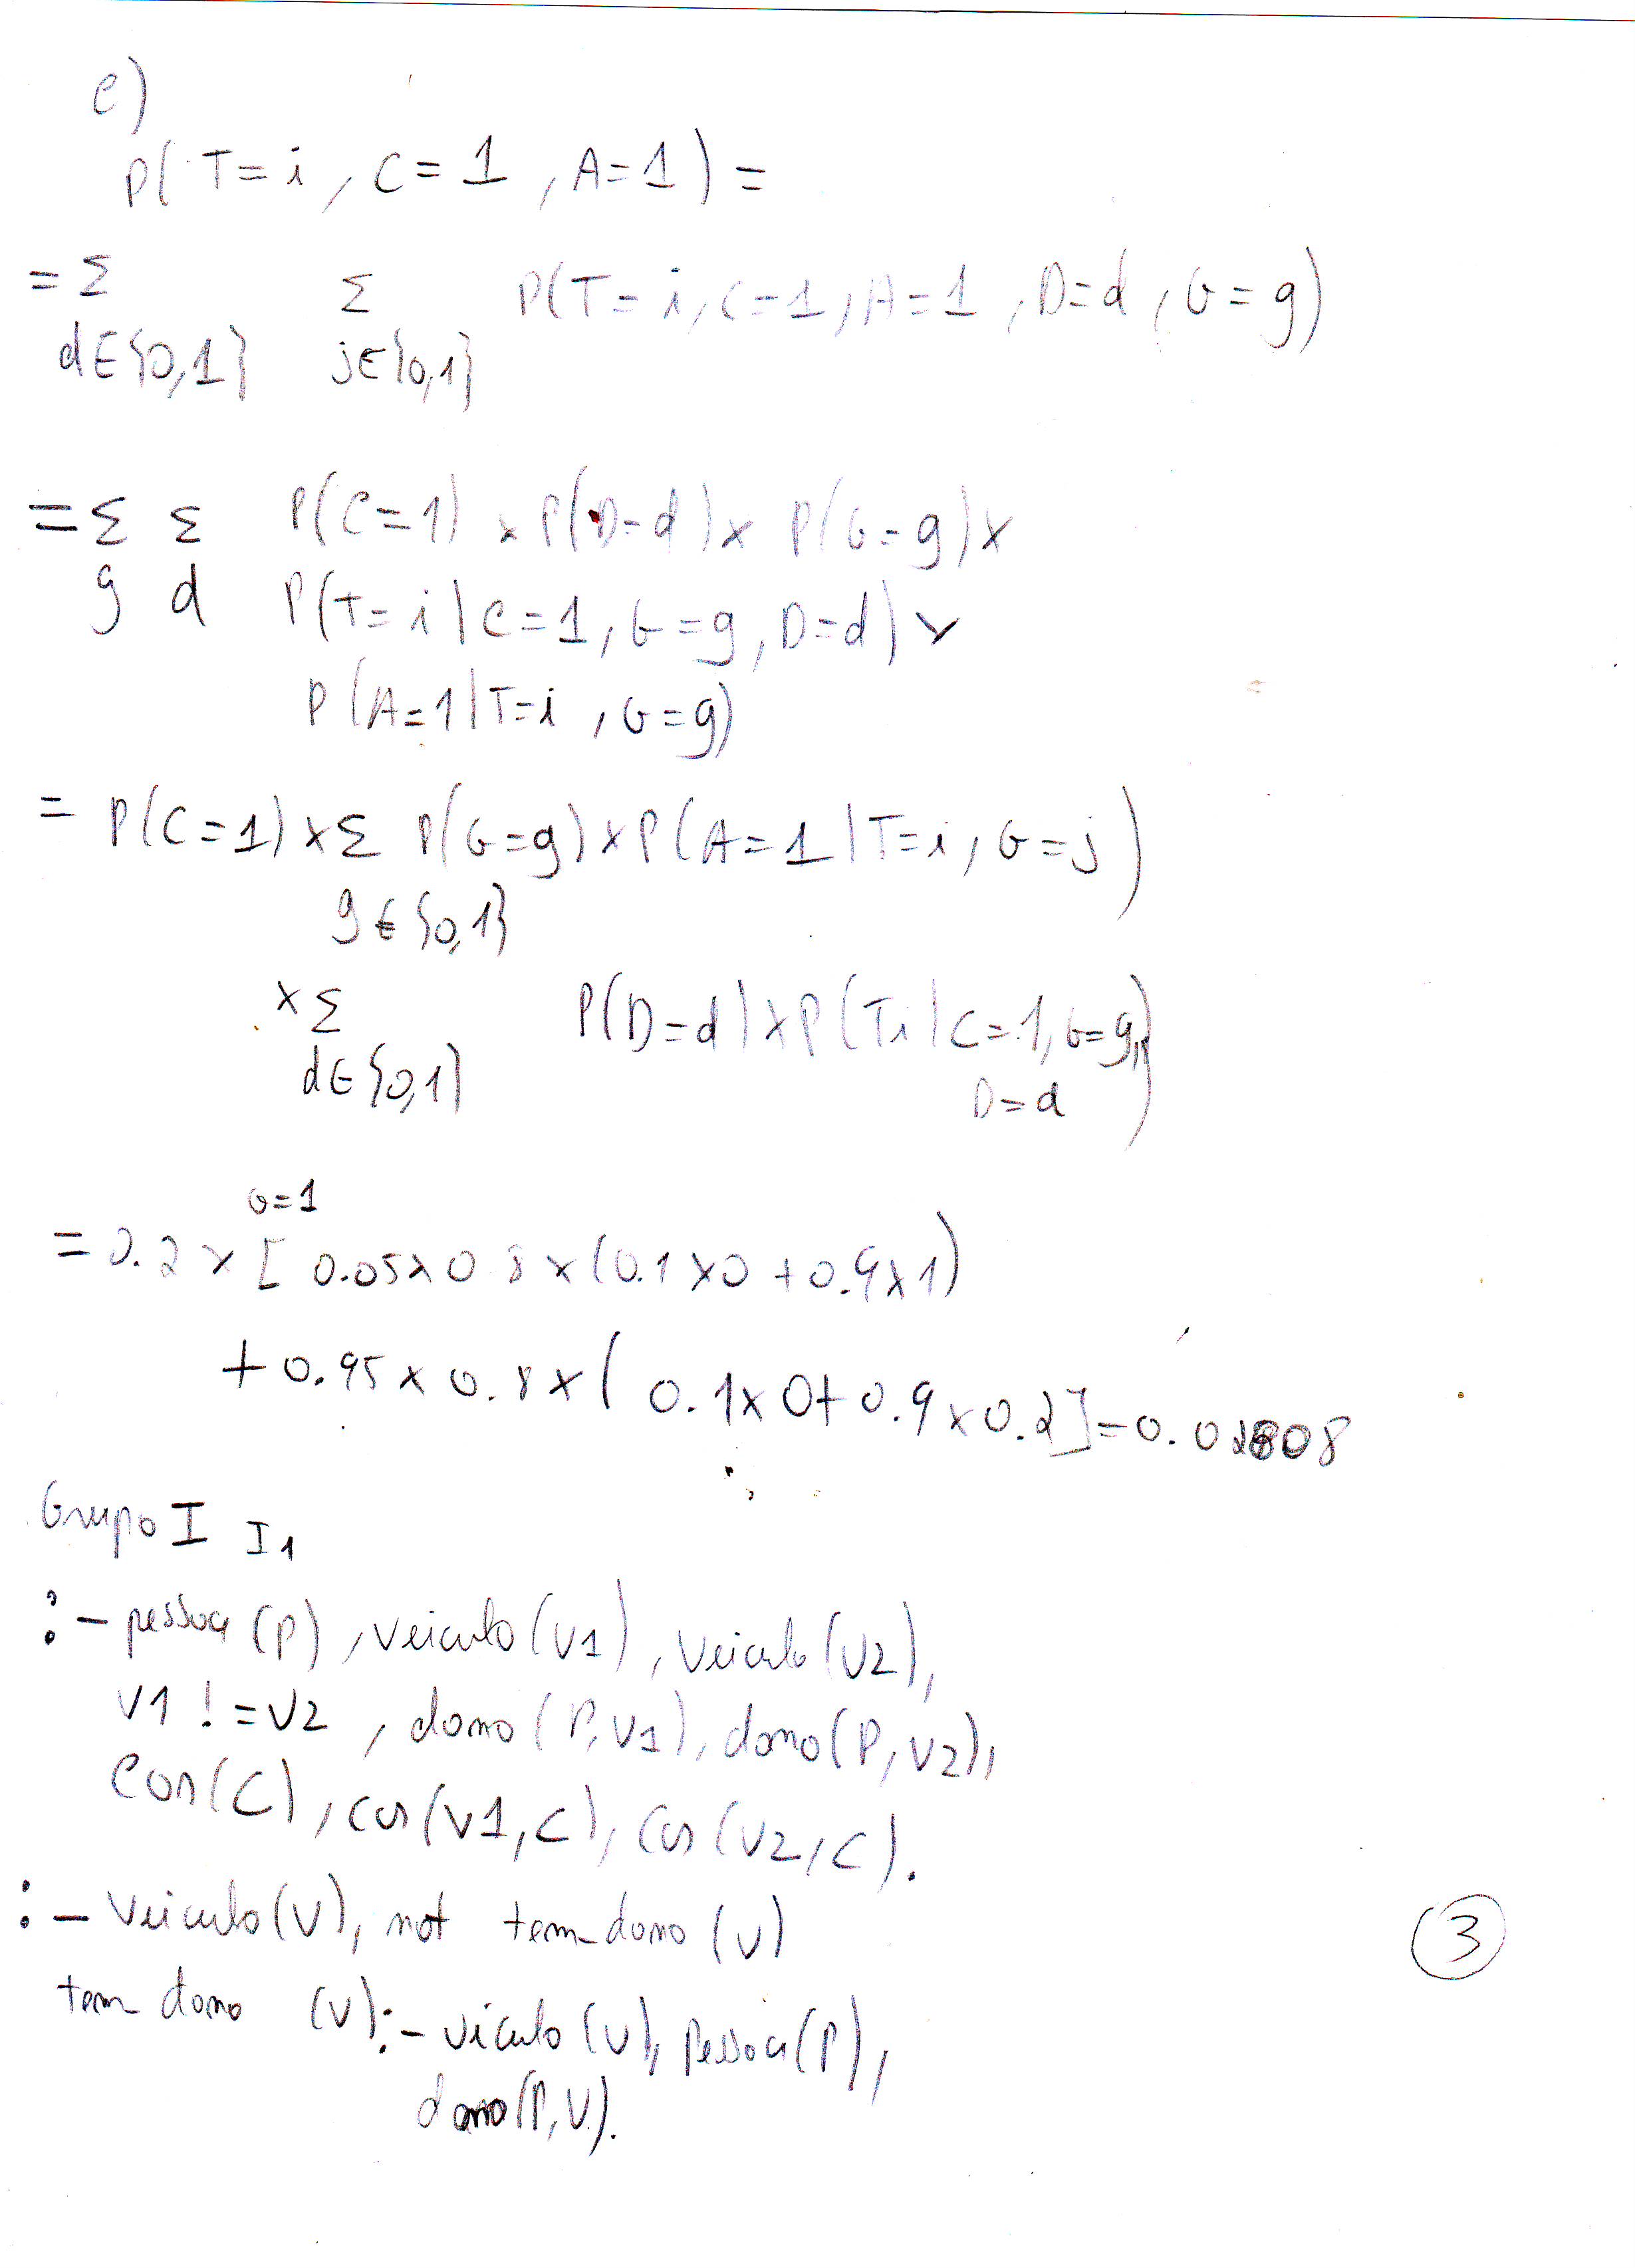 e)
P( T=i , C=1 , A=1 ) =
= Σ Σ P(T=i, C=1, A=1, D=d, G=g)
d∈{0,1} j∈{0,1}
= Σ Σ P(C=1) x P(D=d) x P(G=g) x
g d P(T=i | C=1, G=g, D=d) x
P(A=1 | T=i, G=g)
= P(C=1) x Σ P(G=g) x P(A=1 | T=i, G=j)
g∈{0,1}
x Σ P(D=d) x P(Ti | C=1, G=g,
d∈{0,1} D=d )
G=1
= 0.2 x [ 0.05 x 0.8 x (0.1 x 0 + 0.9 x 1)
+ 0.95 x 0.8 x ( 0.1 x 0 + 0.9 x 0.2 ] =
Grupo I I1
:- pessoa (P), veiculo (V1), veiculo (V2),
V1 != V2 , dono (P, V1), dono (P, V2),
cor (C), cor (V1, C), cor (V2, C).
:- veiculo (V), not tem_dono (V)
tem_dono (V) :- viculo (V), pessoa (P),
dono (P, V).
3